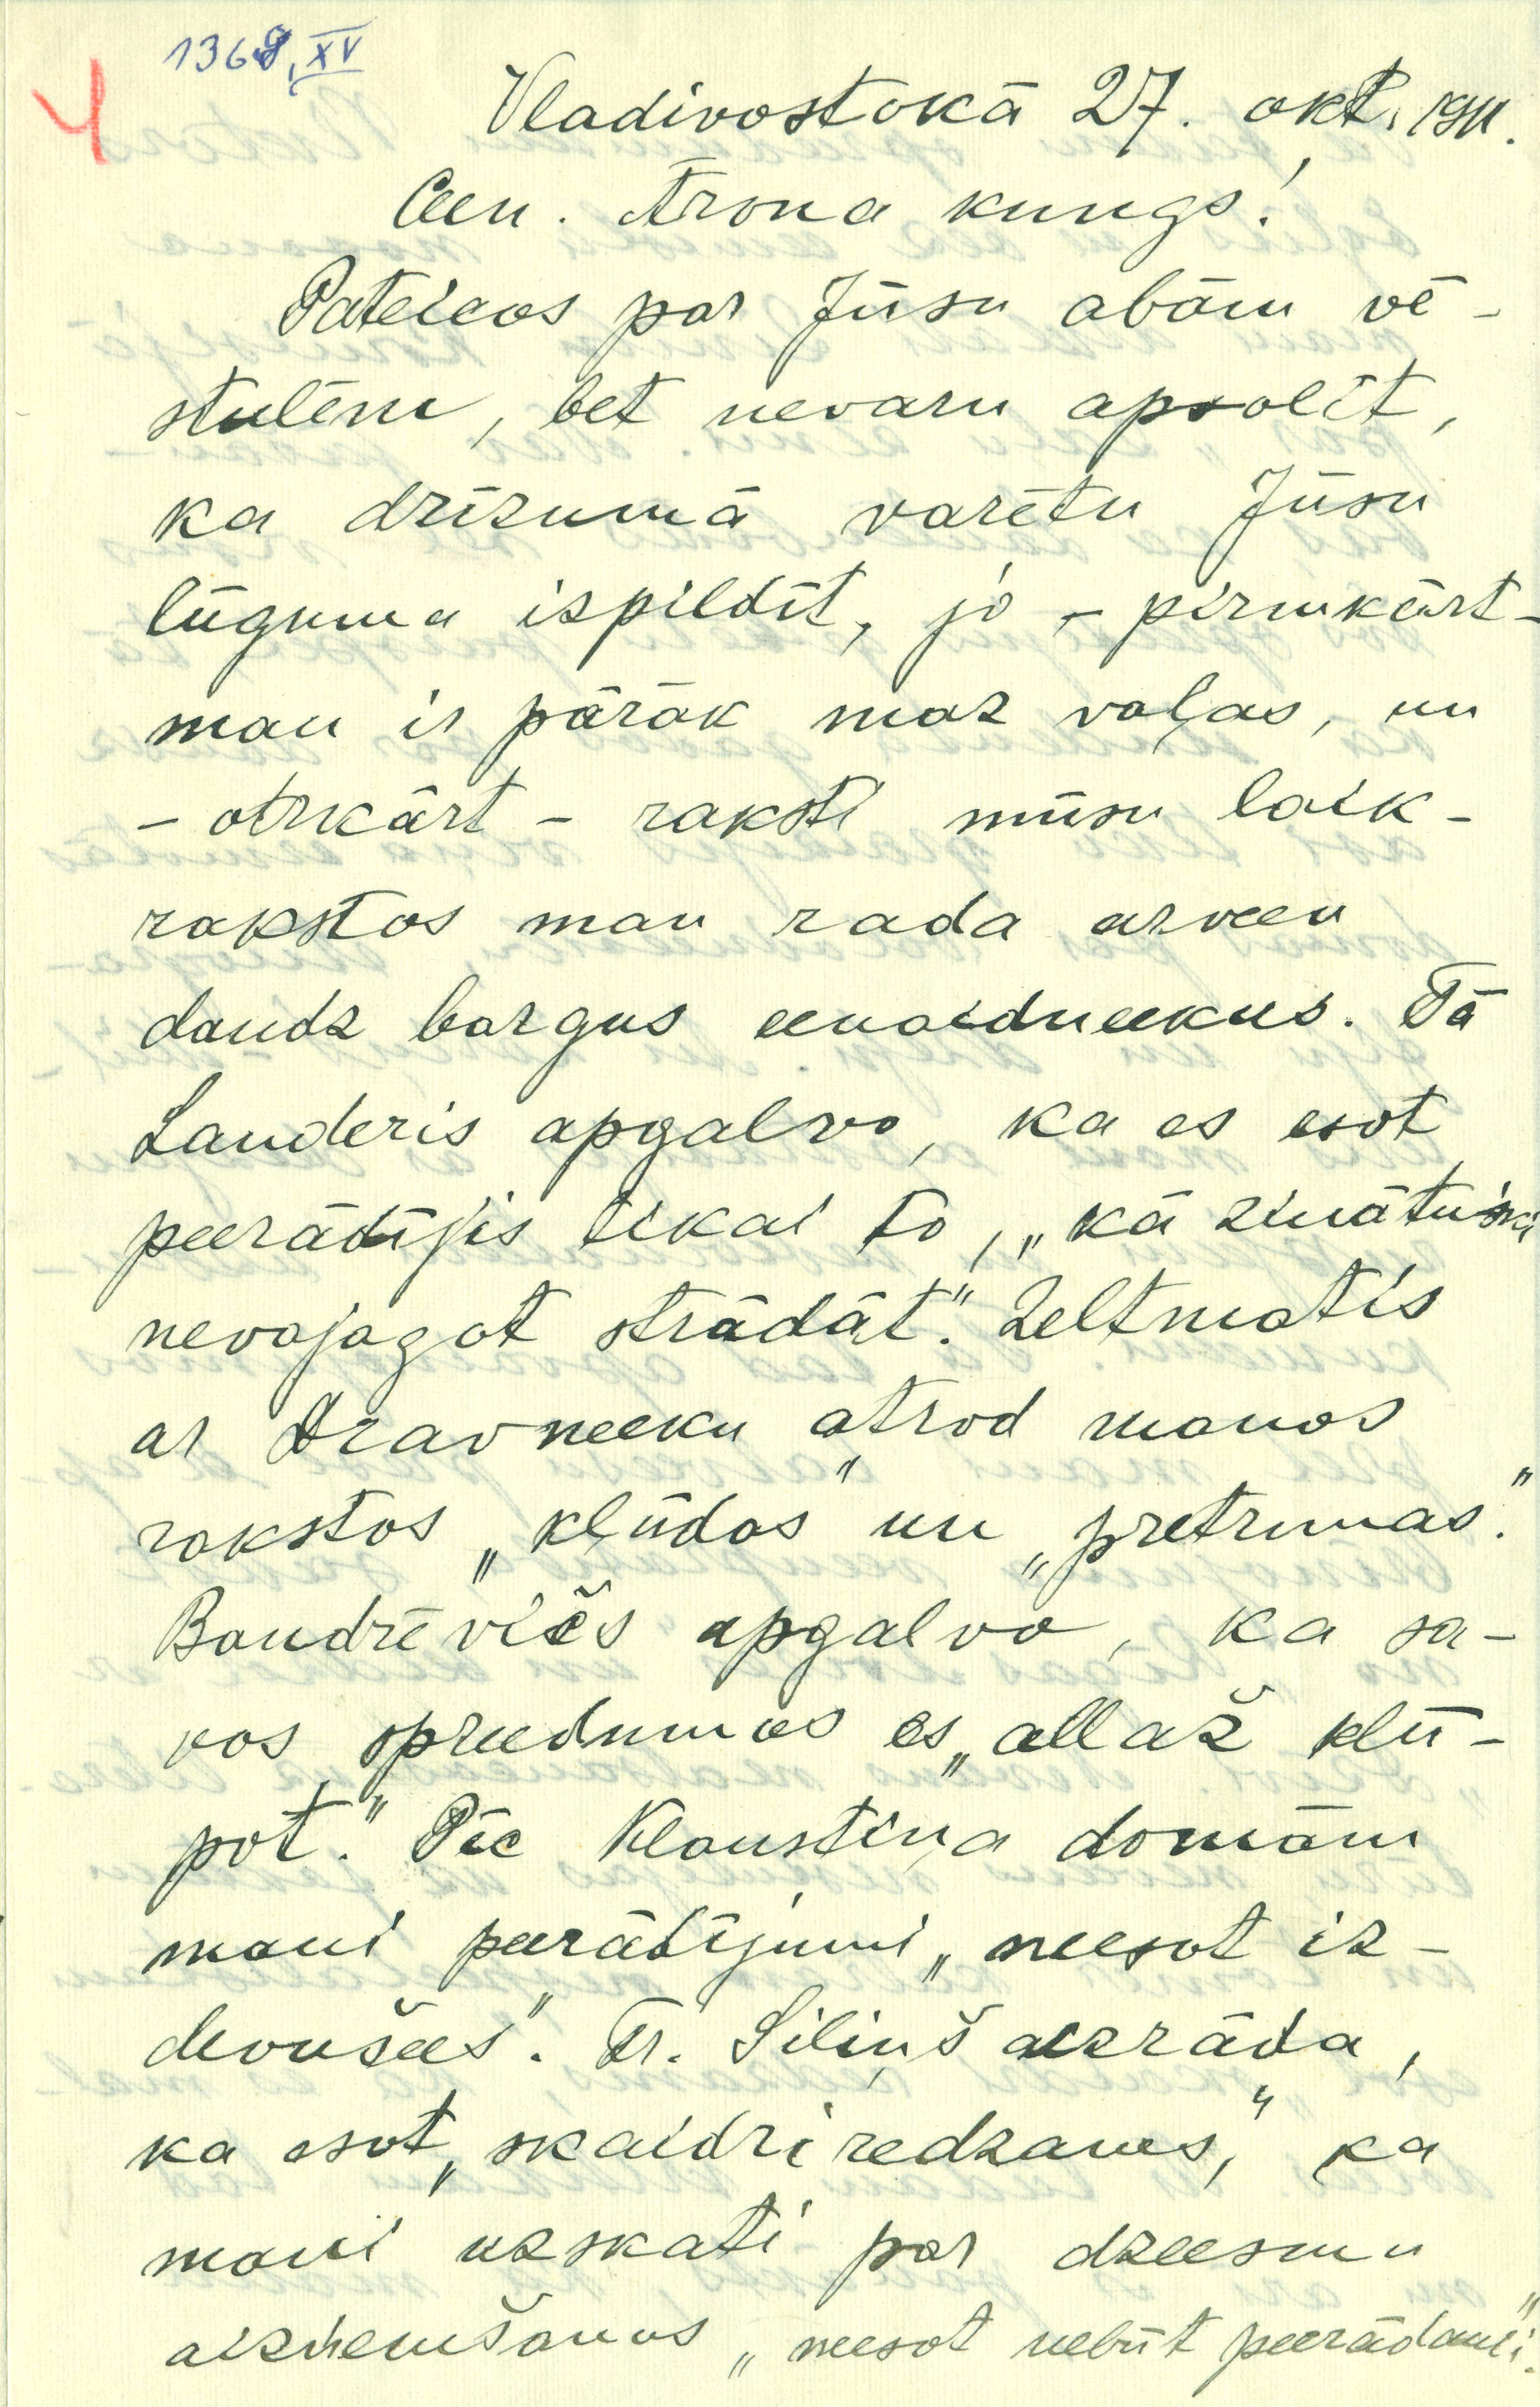 1368, XV
4
Vladivostokā 27. okt. 1911.
Ceen. Ārona kungs!
Pateicos par Jūsu abām vē-
stulēm, bet nevaru apsolīt,
ka drīzumā varētu Jūsu
lūgumu ispildīt, jo - pirmkārt -
man ir pārāk maz vaļas, un
- otrkārt - raksti mūsu laik-
rakstos man rada arveen
daudz bargus eenaidneekus. Tā
Landeris apgalvo, ka es esot
peerādījis tikai to, „kā zinātniski
nevajagot strādāt". Zeltmatis
ar Dravneeku atrod manos
rakstos „kļūdas" un „pretrunas."
Bandrēvičs apgalvo, ka sa-
vos spreedumos es „allaž klū-
pot." Pēc Klaustiņa domām
mani peerādījumi „neesot iz-
devušees". Fr. Siliņš aizrāda,
ka esot „skaidri redzams," ka
mani uzskati par dzeesmu
aizņemšanos „neesot nebūt peerādami."